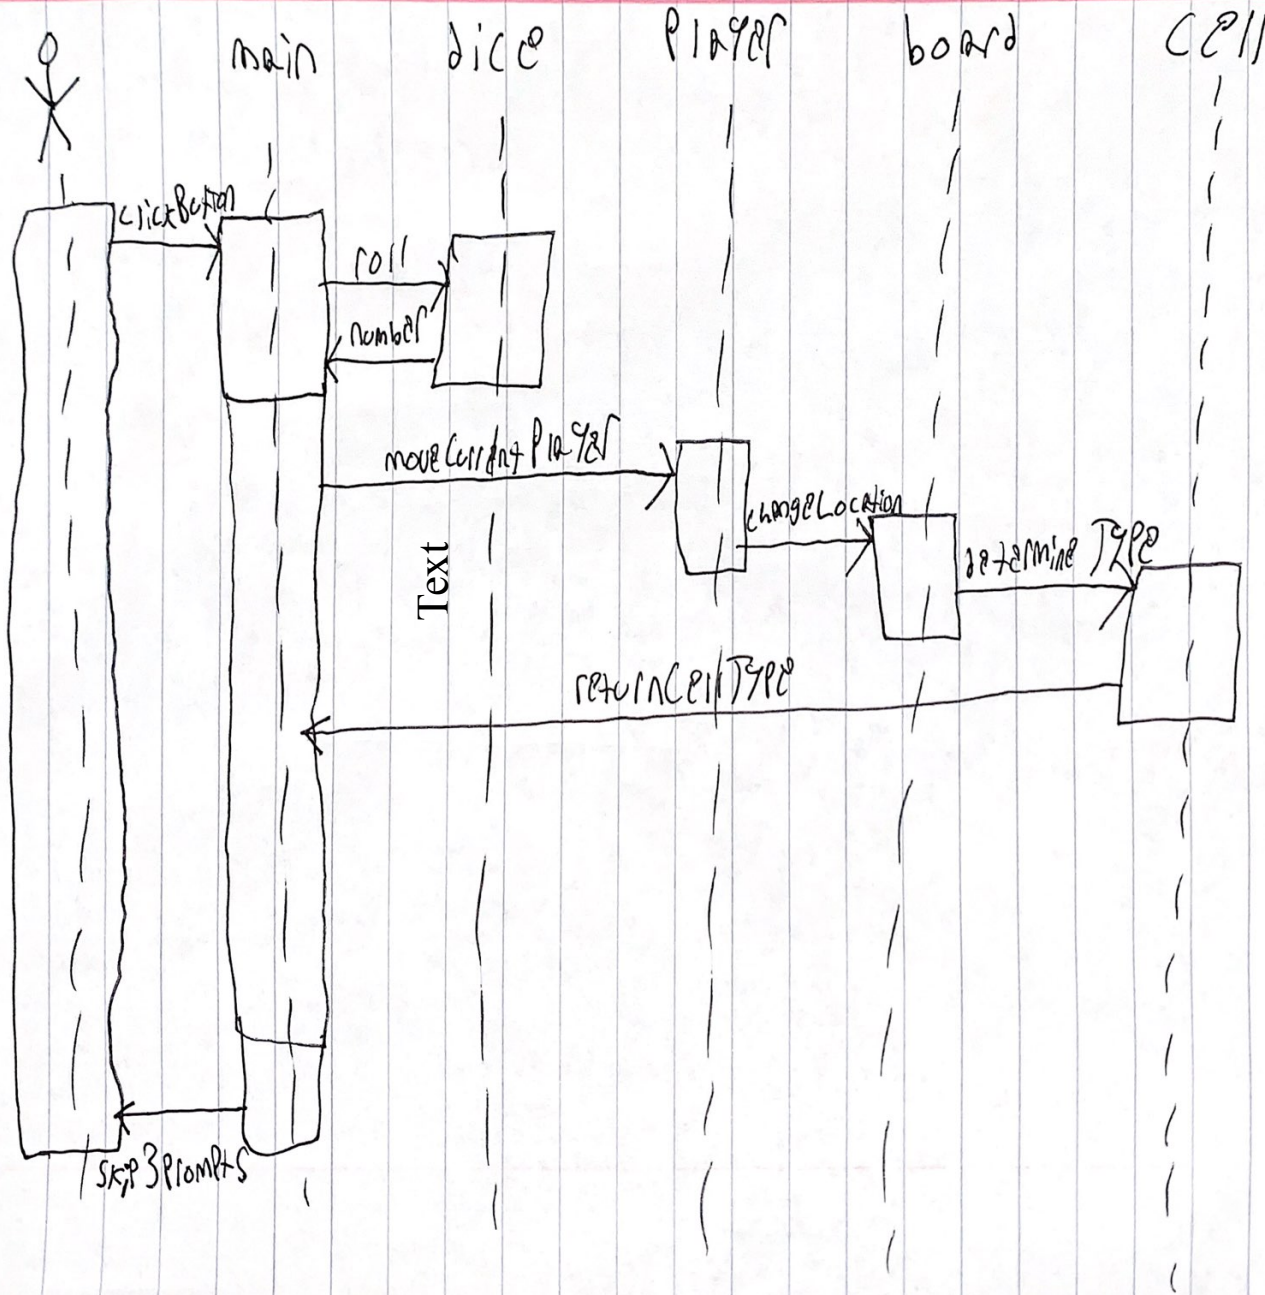 main
dice
Player
board
Cell
clickButton
roll
number
moveCurrentPlayer
changeLocation
determineType
Text
returnCellType
skip3prompts